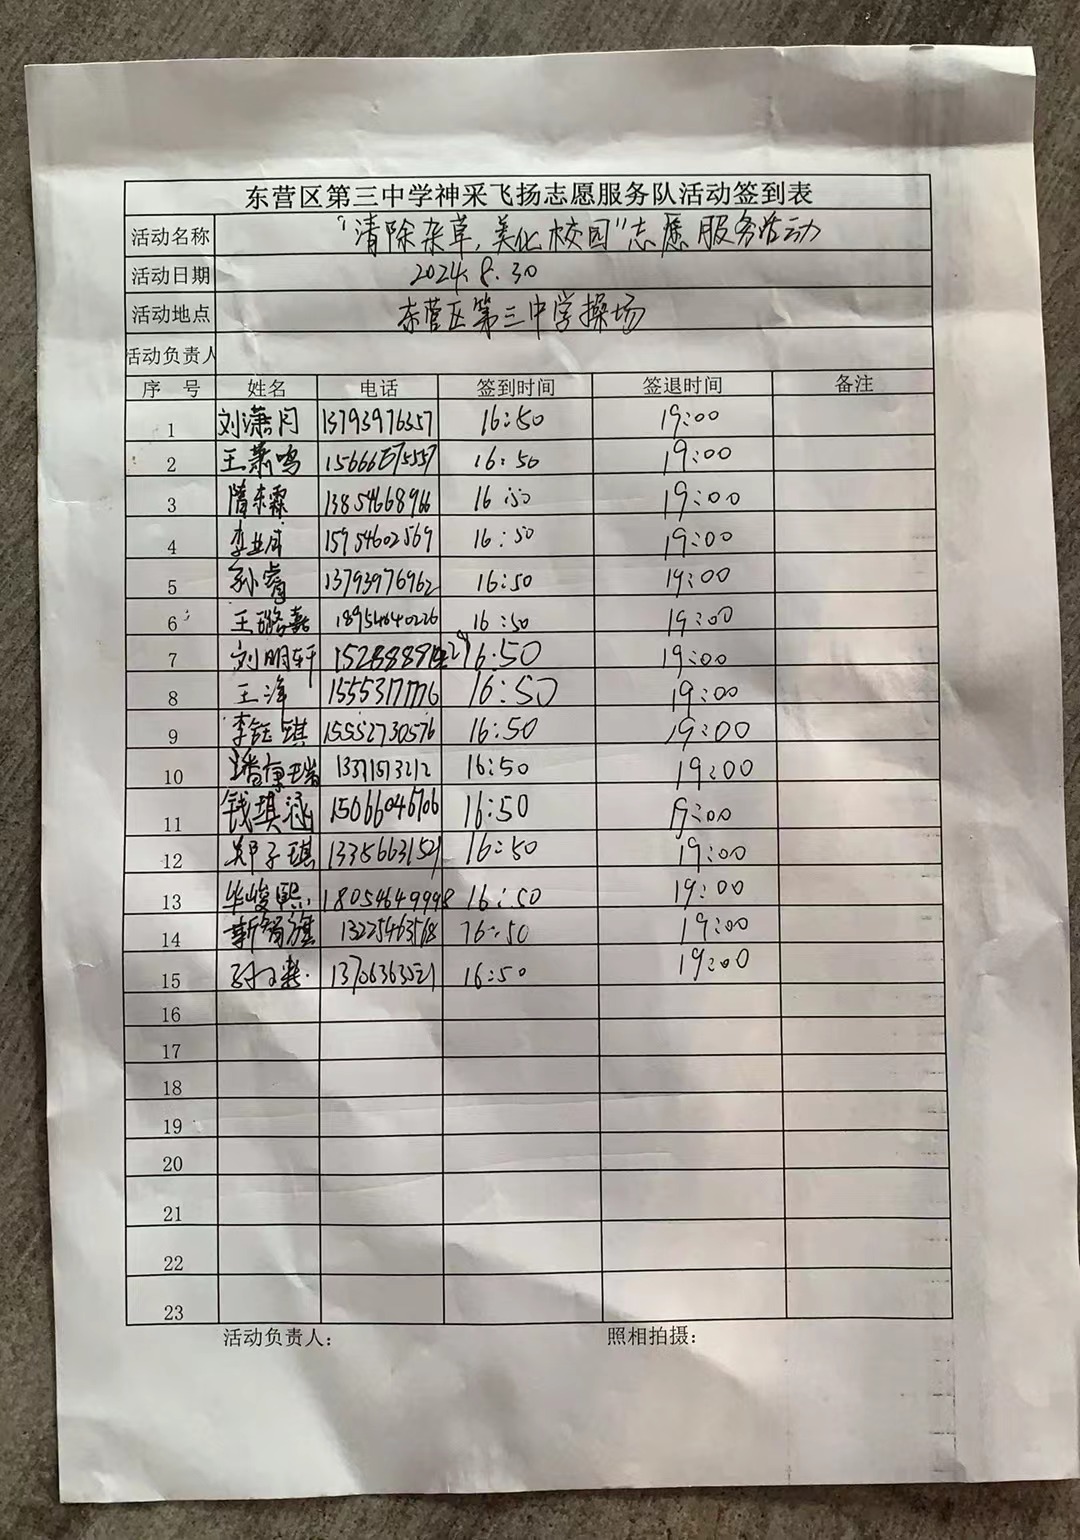 东营区第三中学神采飞扬志愿服务队活动签到表
活动名称 "清除杂草,美化校园"志愿服务活动
活动日期 2024.8.30
活动地点 东营区第三中学操场
活动负责人
序 号 姓名 电话 签到时间 签退时间 备注
1 刘潇月 13793976357 16:50 19:00
2 王萧鸣 16:50 19:00
3 隋东霖 13854668966 16:50 19:00
4 15954602569 16:50 19:00
5 孙睿 13793976962 16:50 19:00
6 王璐嘉 18954640226 16:50 19:00
7 刘明轩 16:50 19:00
8 王泽 15553177776 16:50 19:00
9 李钰琪 15552730576 16:50 19:00
10 13371513212 16:50 19:00
11 钱琪涵 15066046706 16:50 19:00
12 郑子琪 13356631521 16:50 19:00
13 毕峻熙 18054649998 16:50 19:00
14 13225463568 16:50 19:00
15 13706363521 16:50 19:00
16
17
18
19
20
21
22
23
活动负责人: 照相拍摄: